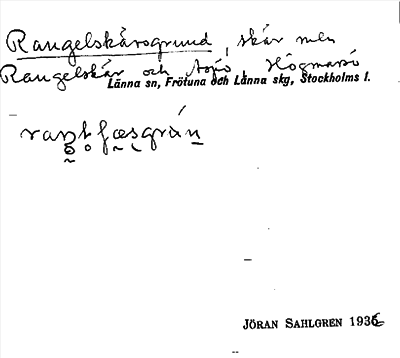 Rangelskärsgrund, skär mell
Rangelskär och Aspö, Högmarsö
Länna sn, Frötuna och Länna skg, Stockholms l.
JÖRAN SAHLGREN 1936